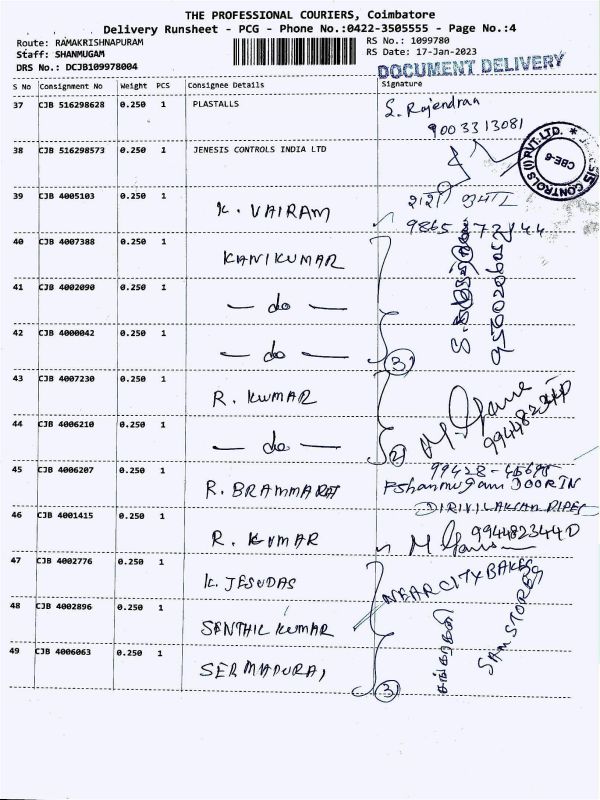 THE PROFESSIONAL COURIERS, Coimbatore
Delivery Runsheet - PCG - Phone No.:0422-3505555 - Page No.:4
Route: RAMAKRISHNAPURAM RS No.: 1099780
Staff: SHANMUGAM RS Date: 17-Jan-2023
DRS No.: DCJB109978004 DOCUMENT DELIVERY
S No Consignment No Weight PCS Consignee Details Signature
37 CJB 516298628 0.250 1 PLASTALLS S. Rajendran
9003313081
38 CJB 516298573 0.250 1 JENESIS CONTROLS INDIA LTD
CONTROLS (I) PVT.LTD. * CBE-6
39 CJB 4005103 0.250 1 K. VAIRAM
40 CJB 4007388 0.250 1 KANIKUMAR
41 CJB 4002090 0.250 1 — do —
42 CJB 4000042 0.250 1 — do — 3
43 CJB 4007230 0.250 1 R. KUMAR
44 CJB 4006210 0.250 1 — do — 2
45 CJB 4006207 0.250 1 R. BRAMMARAJ
46 CJB 4001415 0.250 1 R. KUMAR
47 CJB 4002776 0.250 1 K. JESUDAS NEAR CITY BAKES
48 CJB 4002896 0.250 1 SENTHIL KUMAR SAM STORES
49 CJB 4006063 0.250 1 SERMADURAI 3